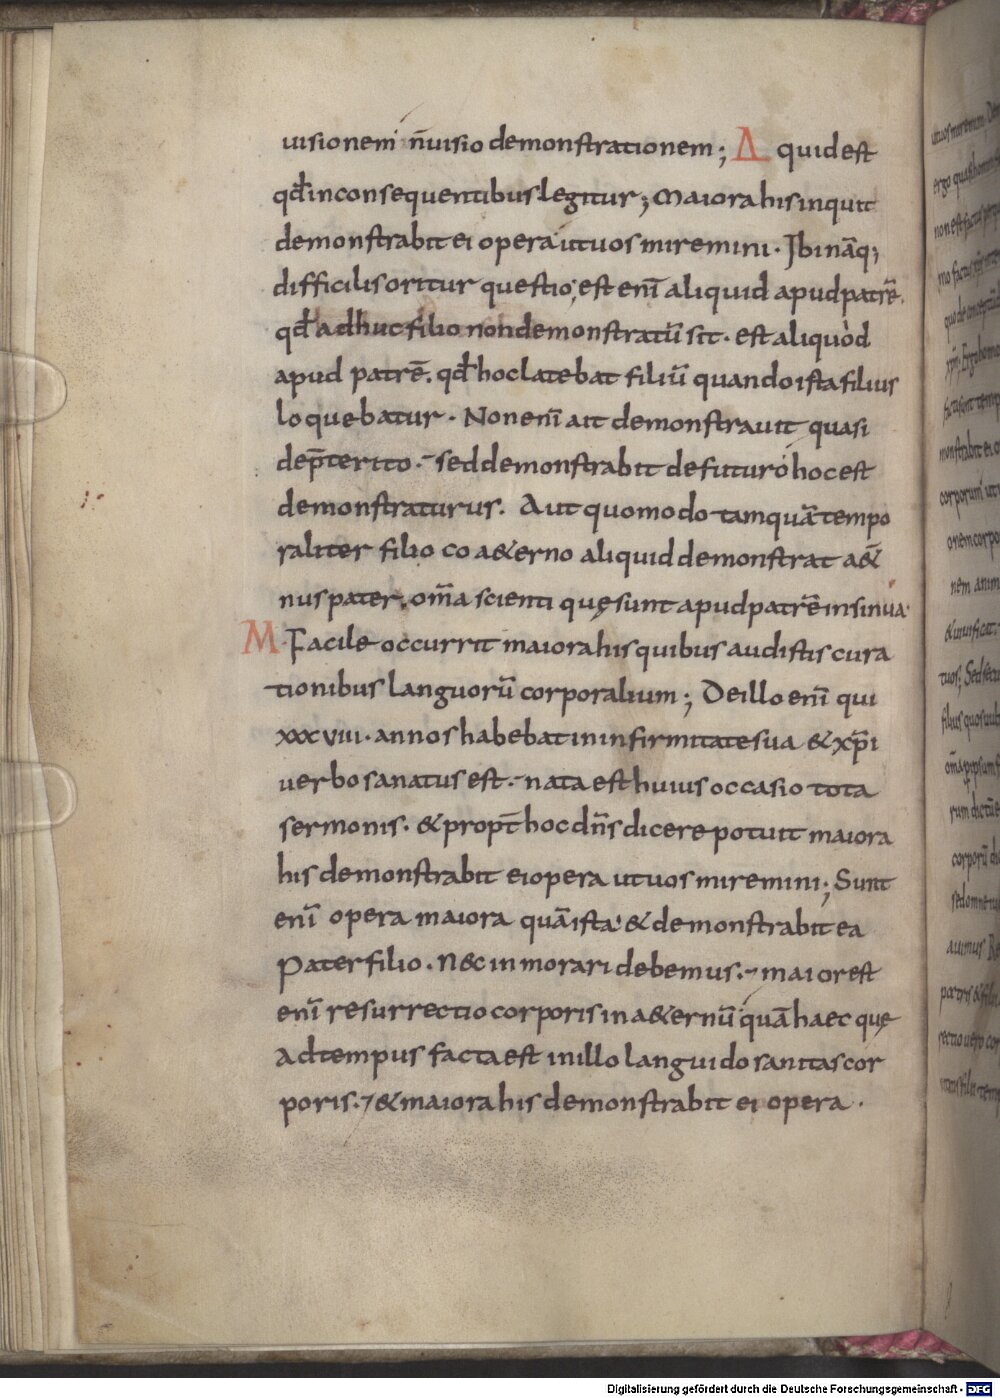 uisionem n̄ uisio demonstrationem; Δ quid est
qđ in consequentibus legitur; Maiora his inquit
demonstrabit ei opera ut uos miremini. Ibi nāq;
difficilis oritur questio, est enī aliquid apud patrē.
qđ adhuc filio non demonstratū sit. est aliquod
apud patrē. qđ hoc latebat filiū quando ista filius
loquebatur. Non enī ait demonstrauit quasi
de p̄terito. sed demonstrabit de futuro hoc est
demonstraturus. Aut quomodo tamquā tempo
raliter filio coa&erno aliquid demonstrat a&
nus pater. om̄a scienti quę sunt apud patrē insinua
M. Facile occurrit maiora his quibus audistis cura
tionibus languorū corporalium; De illo enī qui
xxxviii. annos habebat in infirmitate sua & xp̄i
uerbo sanatus est. nata est huius occasio tota
sermonis. & propt̄ hoc dn̄s dicere potuit maiora
his demonstrabit ei opera ut uos miremini; Sunt
enī opera maiora quā ista & demonstrabit ea
Pater filio. N&c inmorari debemus. maior est
enī resurrectio corporis in a&ernū quā haec quę
ad tempus facta est in illo languido sanitas cor
poris. & maiora his demonstrabit ei opera.
Digitalisierung gefördert durch die Deutsche Forschungsgemeinschaft - DFG